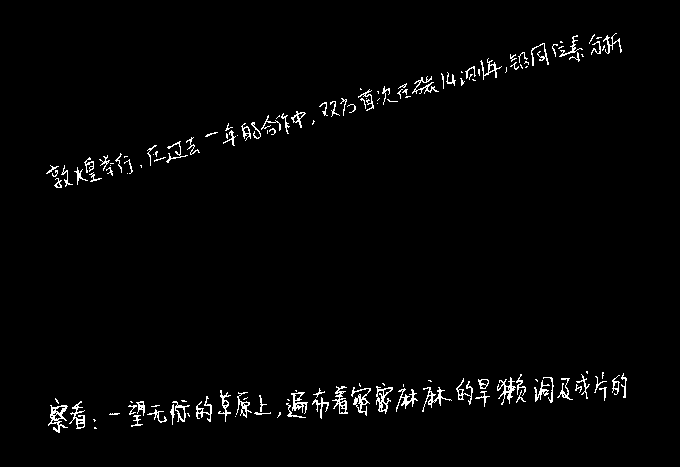 敦煌举行.在过去一年的合作中,双方首次在碳14测年,铅同位素分析
察看:一望无际的草原上,遍布着密密麻麻的旱獭洞及成片的